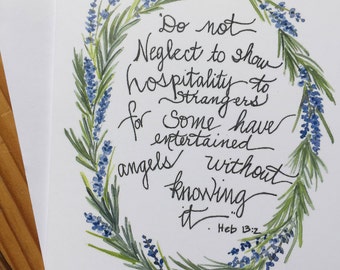 "Do not
Neglect to show
hospitality to
strangers
for some have
entertained
angels without
knowing
it."
Heb 13:2